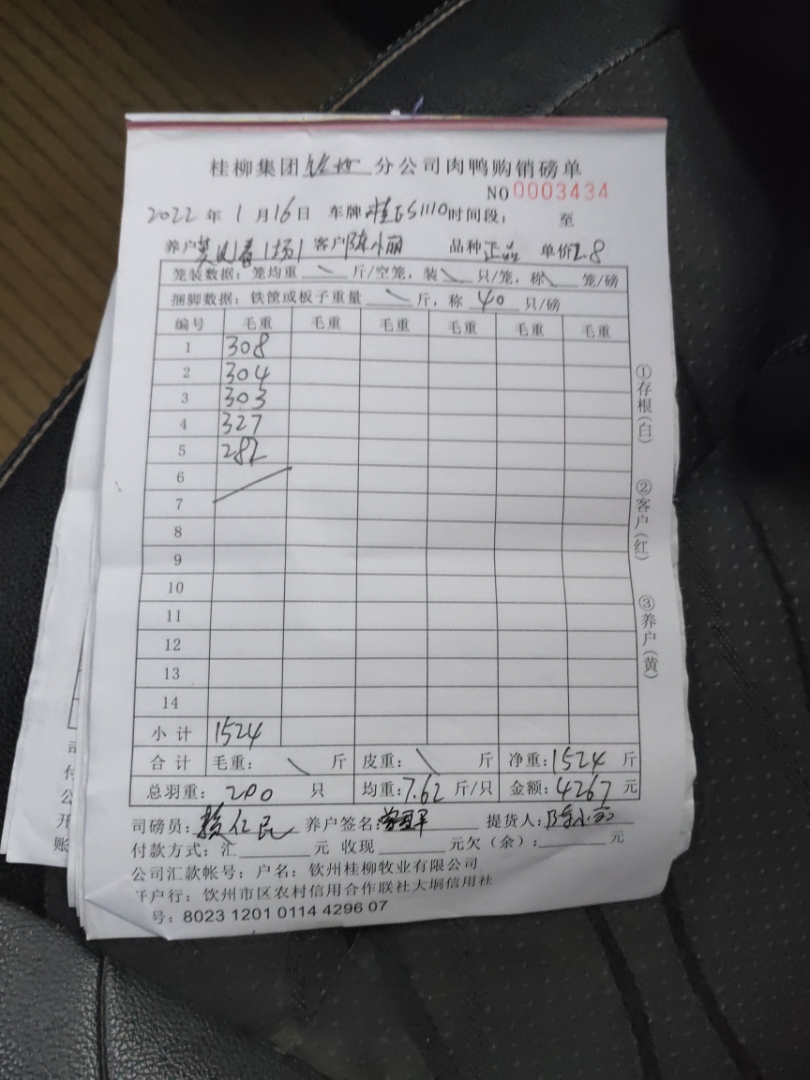 桂柳集团钦州分公司肉鸭购销磅单
NO 0003434
2022年1月16日 车牌桂ES1110时间段: 至
养户 春1场1 客户陈小丽 品种正品 单价2.8
笼装数据: 笼均重 \ 斤/空笼, 装 \ 只/笼, 称 \ 笼/磅
捆脚数据: 铁筐或板子重量 \ 斤, 称 40 只/磅
编号 毛重 毛重 毛重 毛重 毛重 毛重
1 308
2 304
3 303
4 327
5 282
6
7
8
9
10
11
12
13
14
小计 1524
合计 毛重: \ 斤 皮重: \ 斤 净重:1524 斤
总羽重: 200 只 均重:7.62 斤/只 金额:4267 元
司磅员: 赖仁民 养户签名: 提货人:陈小丽
付款方式: 汇 元 收现 元欠(余): 元
公司汇款帐号: 户名: 钦州桂柳牧业有限公司
开户行: 钦州市区农村信用合作联社大垌信用社
号: 8023 1201 0114 4296 07
①存根(白) ②客户(红) ③养户(黄)
司
付
公
开
账